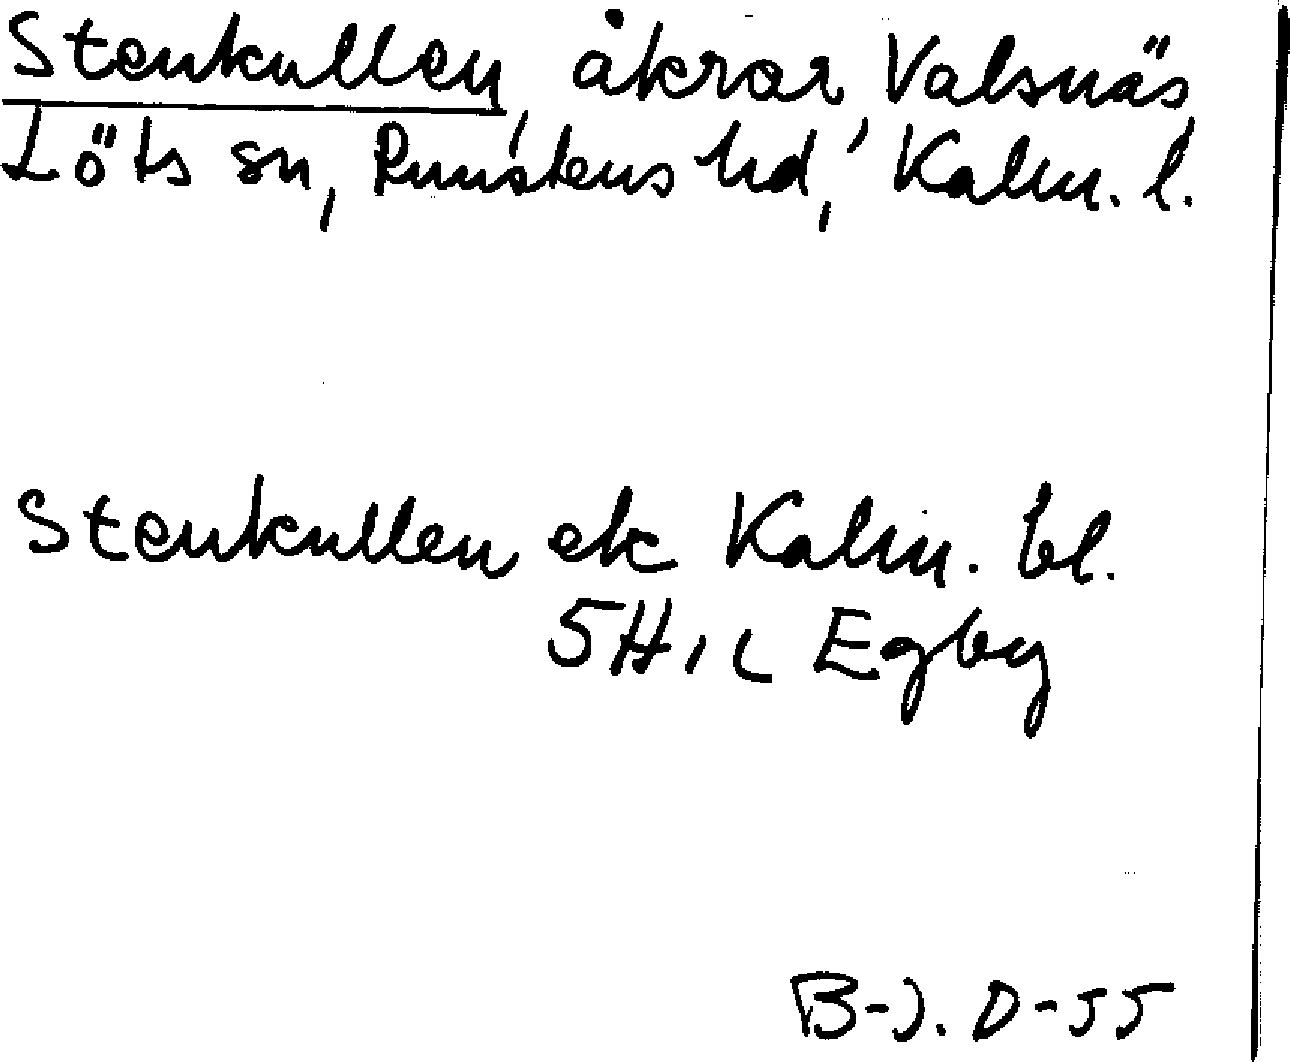 Stenkullen, åkrar, Valsnäs
Löts sn, Runstens hd, Kalm. l.
Stenkullen ek Kalm. bl.
5H1c Egby
B-J. D-55